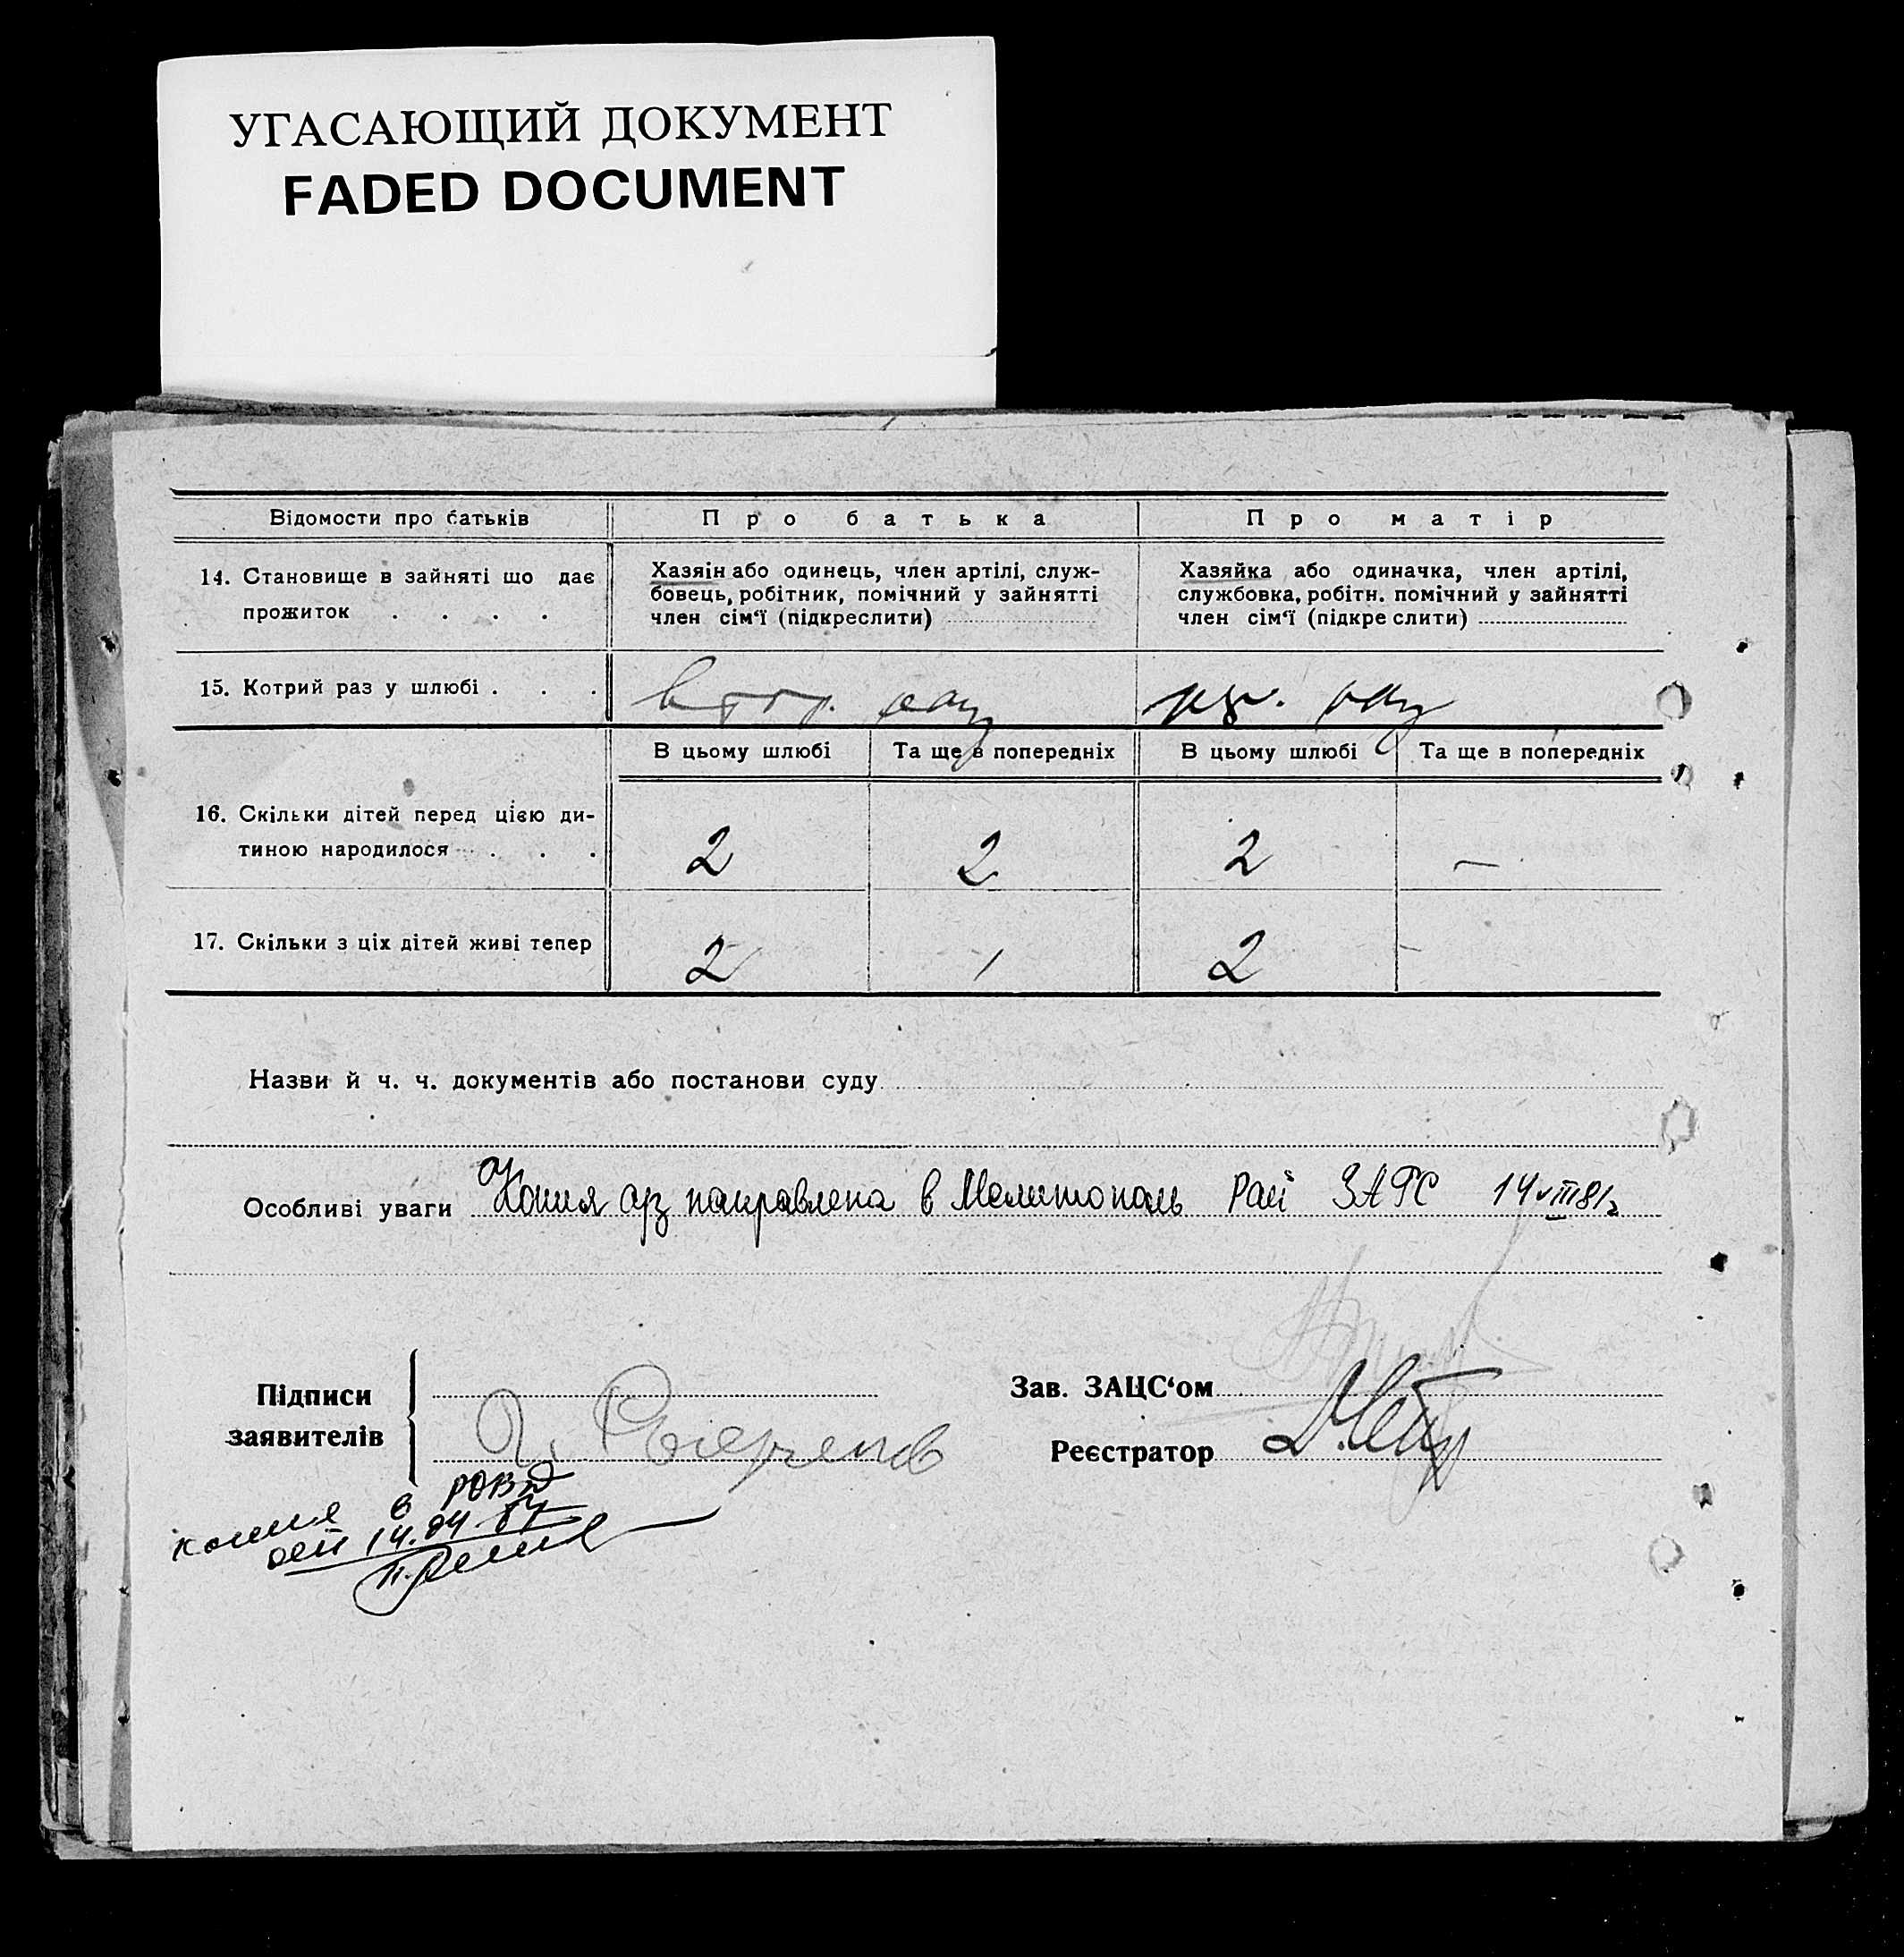 УГАСАЮЩИЙ ДОКУМЕНТ
FADED DOCUMENT
Відомости про батьків
Про батька
Про матір
14. Становище в зайняті що дає
прожиток . . . .
Хазяїн або одинець, член артілі, служ-
бовець, робітник, помічний у зайнятті
член сім‘ї (підкреслити)
Хазяйка або одиначка, член артілі,
службовка, робітн. помічний у зайнятті
член сім‘ї (підкреслити)
15. Котрий раз у шлюбі . . .
В цьому шлюбі
Та ще в попередніх
В цьому шлюбі
Та ще в попередніх
16. Скільки дітей перед цією ди-
тиною народилося . . .
2
2
2
—
17. Скільки з ціх дітей живі тепер
2
1
2
-
Назви й ч. ч. документів або постанови суду
Особливі уваги Копия а/з направлена в Мелитополь Рай ЗАГС 14 VIII 81г
Підписи
заявителів
Зав. ЗАЦС‘ом
Реєстратор
копия в РОВД
14.04.87